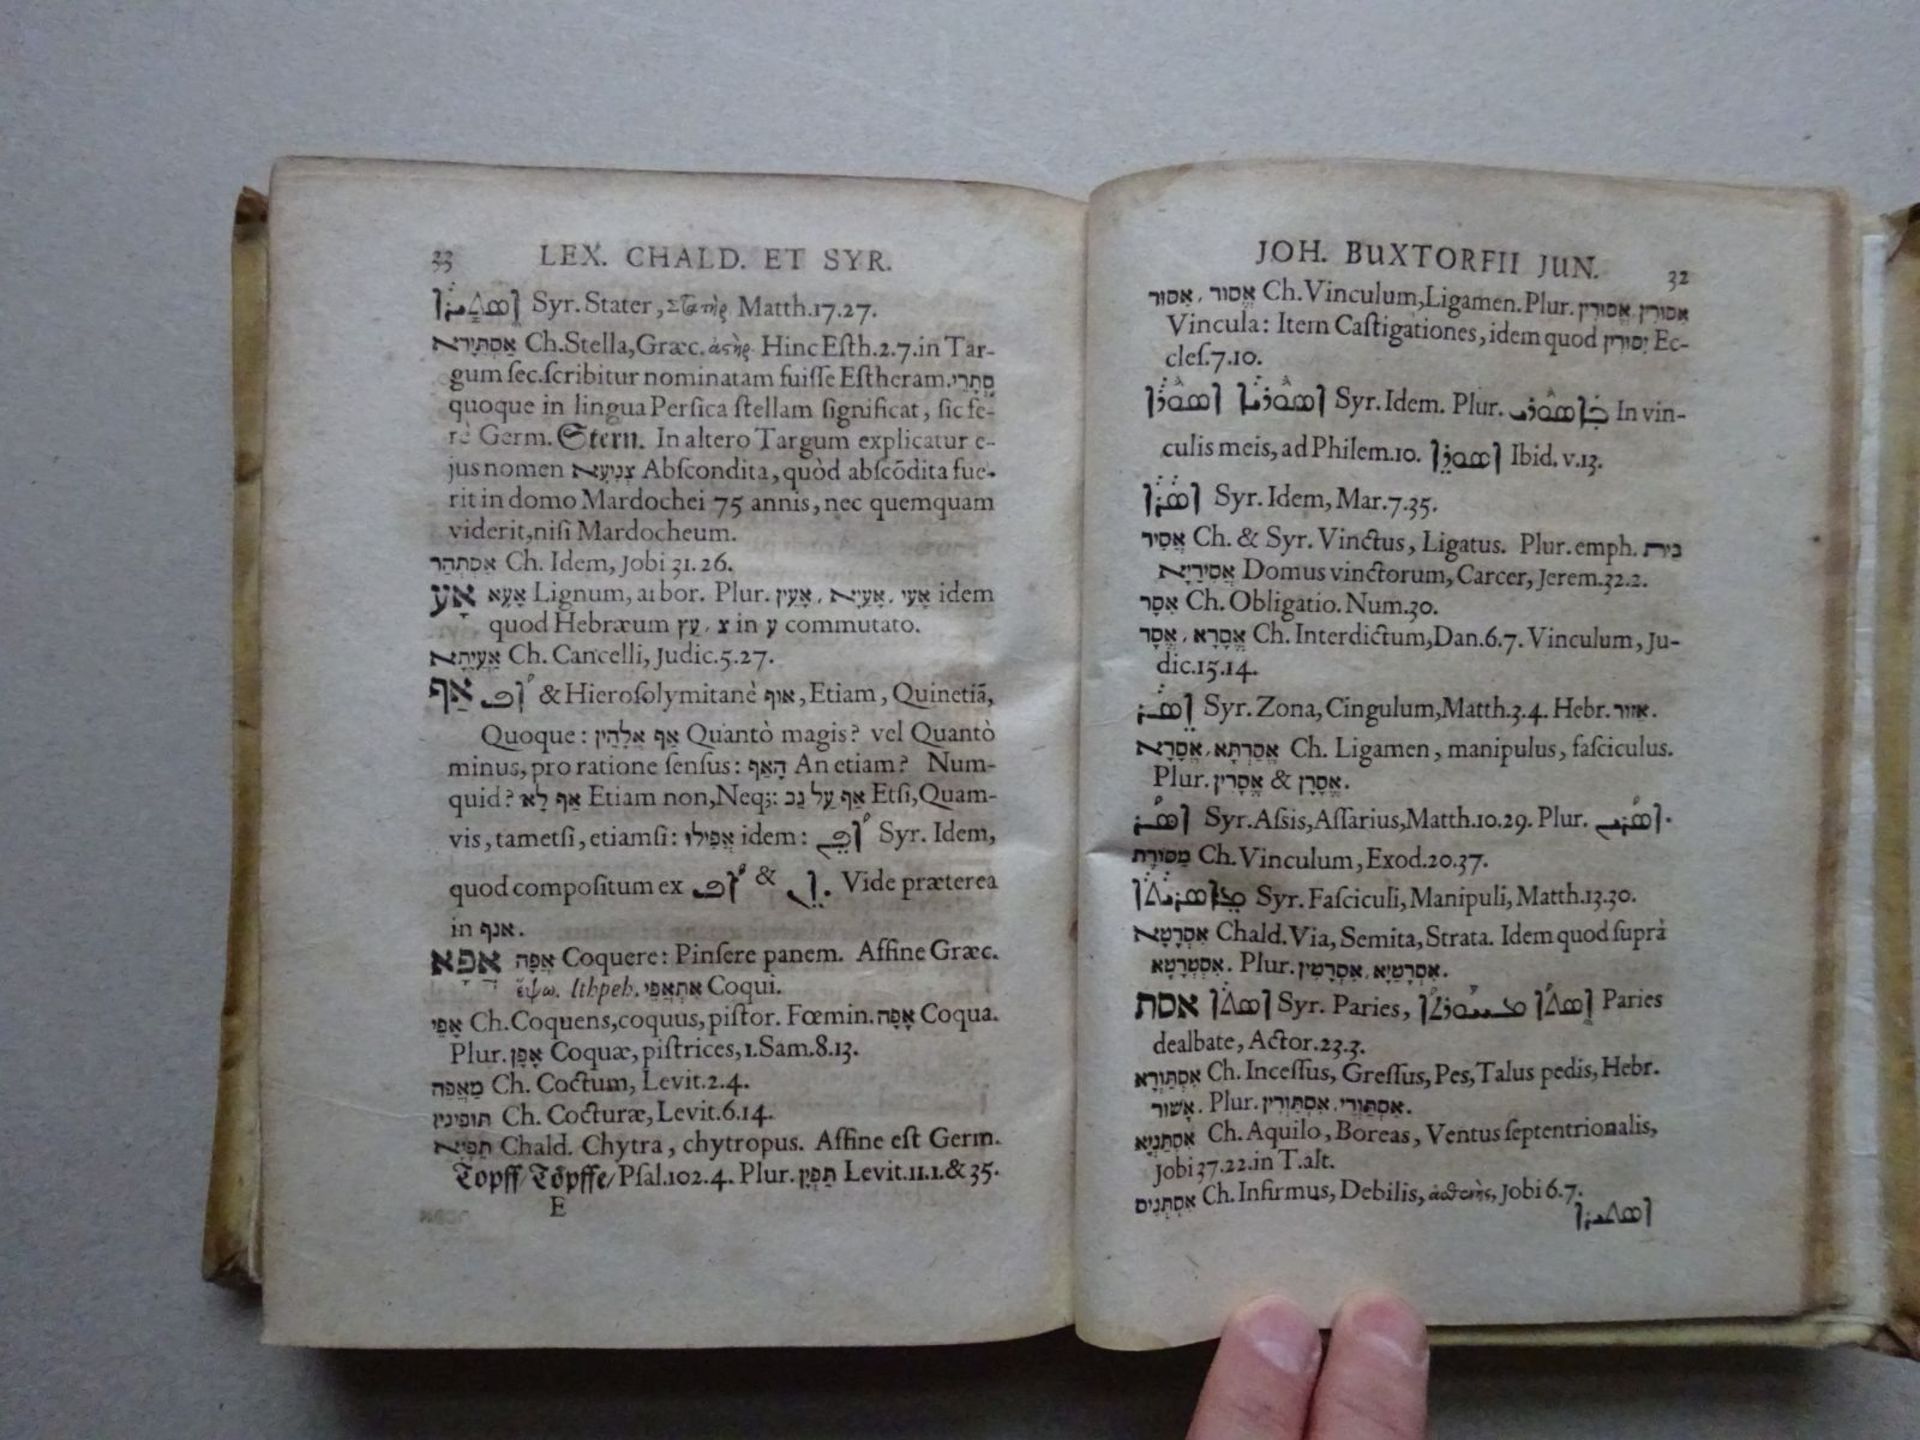 JOH. BUXTORFII JUN. 32
אֱסוּר, אִסוּר Ch. Vinculum, Ligamen. Plur. אֱסוּרִין, אִסוּרִין
Vincula: Item Caſtigationes, idem quod יִסּוּרִין Ec-
cleſ.7.10.
Syr. Idem. Plur. In vin-
culis meis, ad Philem.10. Ibid. v.13.
Syr. Idem, Mar.7.35.
אֲסִיר Ch. & Syr. Vinctus, Ligatus. Plur. emph. בֵּית
אֲסִירַיָּא Domus vinctorum, Carcer, Jerem.32.2.
אִסָר Ch. Obligatio. Num.30.
אֱסָרָא, אֱסָר Ch. Interdictum, Dan.6.7. Vinculum, Ju-
dic.15.14.
Syr. Zona, Cingulum, Matth.3.4. Hebr. אזור.
אֱסַרְתָּא, אֱסָרָא Ch. Ligamen, manipulus, faſciculus.
Plur. אֱסָרִין & אֱסָרָן.
Syr. Aſsis, Aſſarius, Matth.10.29. Plur.
מַסּוֹרֶת Ch. Vinculum, Exod.20.37.
Syr. Faſciculi, Manipuli, Matth.13.30.
אִסְרָטָא Chald. Via, Semita, Strata. Idem quod ſuprà
אִסְטְרָטָא. Plur. אִסְרָטִין, אִסְרָטַיָּא.
אסת Syr. Paries, Paries
dealbate, Actor.23.3.
אִסְתְּוָרָא Ch. Inceſſus, Greſſus, Pes, Talus pedis, Hebr.
אָשׁוּר. Plur. אִסְתַּוְרִין, אִסְתַּוְרֵי.
אִסְתַּנְיָא Ch. Aquilo, Boreas, Ventus ſeptentrionalis,
Jobi 37.22. in T. alt.
אִסְתְּנִיס Ch. Infirmus, Debilis, ἀσθενὴς, Jobi 6.7.
33 LEX. CHALD. ET SYR.
Syr. Stater, Στατὴρ Matth.17.27.
אַסְתִּירָא Ch. Stella, Græc. ἀστὴρ. Hinc Eſth.2.7. in Tar-
gum ſec. ſcribitur nominatam fuiſſe Eſtheram. סִתָּרֵי
quoque in lingua Perſica ſtellam ſignificat, ſic fe-
rè Germ. Stern. In altero Targum explicatur e-
jus nomen צְנִיעָא Abſcondita, quòd abſcõdita fue-
rit in domo Mardochei 75 annis, nec quemquam
viderit, niſi Mardocheum.
אַסְתְּהַר Ch. Idem, Jobi 31.26.
אָע אָעָא Lignum, arbor. Plur. אָעֵי, אָעַיָּא, אָעִין idem
quod Hebræum עֵץ, צ in ע commutato.
אֲעִיתָא Ch. Cancelli, Judic.5.27.
אַף & Hieroſolymitanè אוף, Etiam, Quinetiã,
Quoque: אַף אֱלָהֵין Quantò magis? vel Quantò
minus, pro ratione ſenſus: הַאַף An etiam? Num-
quid? אַף לָא Etiam non, Neq;: אַף עַל גַּב Etſi, Quam-
vis, tametſi, etiamſi: אֲפִילוּ idem: Syr. Idem,
quod compoſitum ex & . Vide præterea
in אנף.
אפא אֲפָה Coquere: Pinſere panem. Affine Græc.
ἕψω. Ithpeh. אִתְאֲפֵי Coqui.
אָפֵי Ch. Coquens, coquus, piſtor. Fœmin. אָפָה Coqua.
Plur. אָפָן Coquæ, piſtrices, 1. Sam.8.13.
מַאֲפֵה Ch. Coctum, Levit.2.4.
תופינין Ch. Cocturæ, Levit.6.14.
תַּפְיָא Chald. Chytra, chytropus. Affine eſt Germ.
Topff/Töpffe/ Pſal.102.4. Plur. תַּפְיָן Levit.11.1.&35.
E